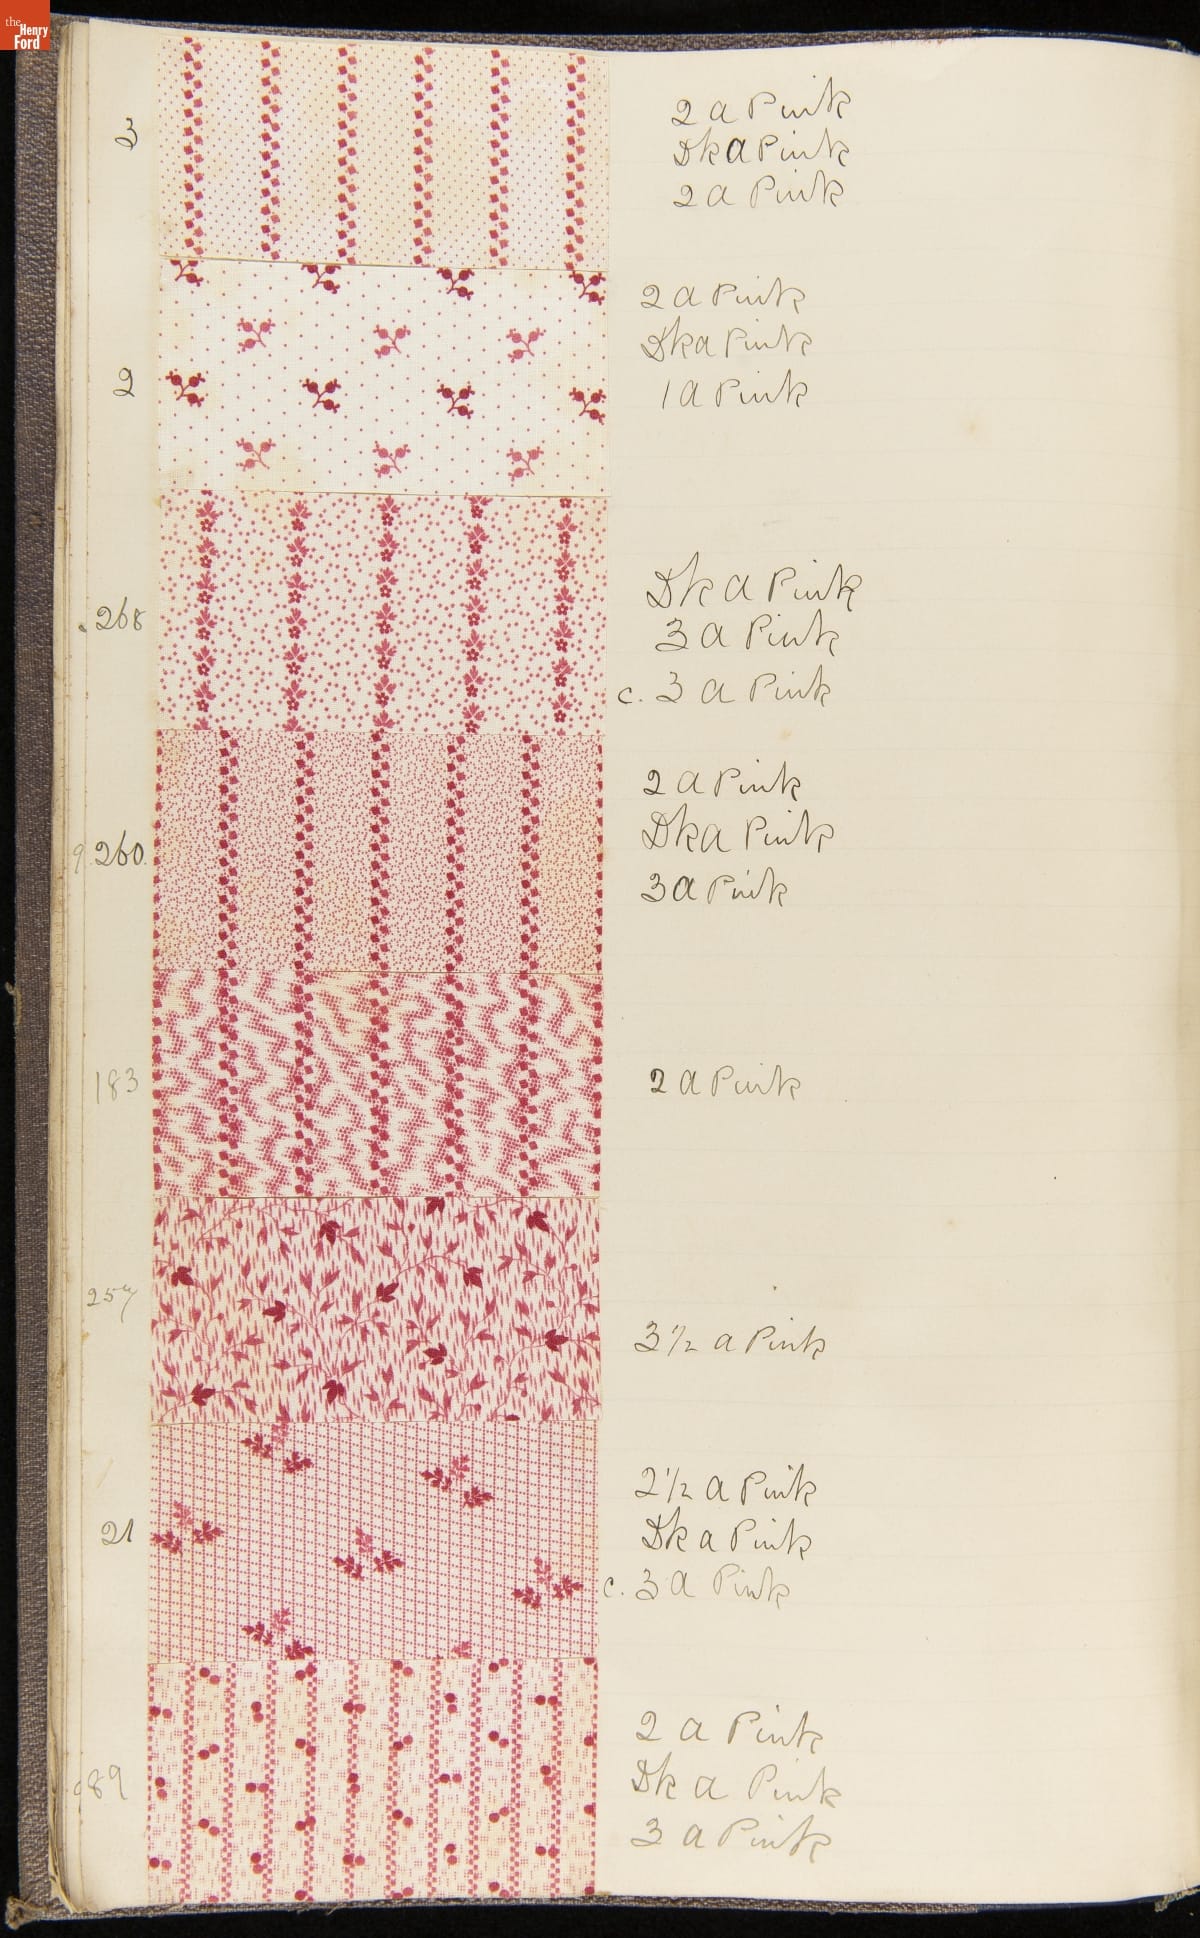 the
Henry
Ford
3
2 a Pink
Dk a Pink
2 a Pink
2
2 a Pink
Dk a Pink
1 a Pink
268
Dk a Pink
3 a Pink
c. 3 a Pink
9. 260.
2 a Pink
Dk a Pink
3 a Pink
183
2 a Pink
257
3 1/2 a Pink
21
2 1/2 a Pink
Dk a Pink
c. 3 a Pink
89
2 a Pink
Dk a Pink
3 a Pink